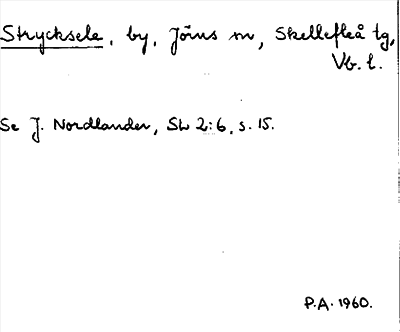 Strycksele, by, Jörns sn, Skellefteå tg,
Vb. l.
Se J. Nordlander, SW 2:6, s. 15.
P.A. 1960.